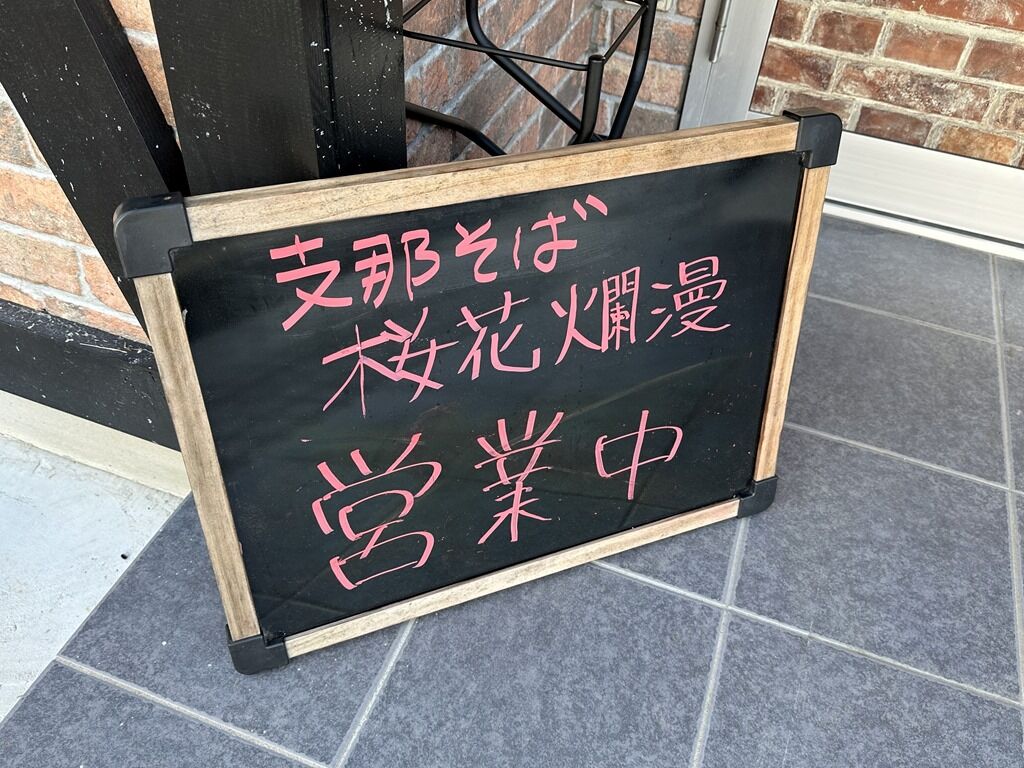 支那そば
桜花爛漫
営業中